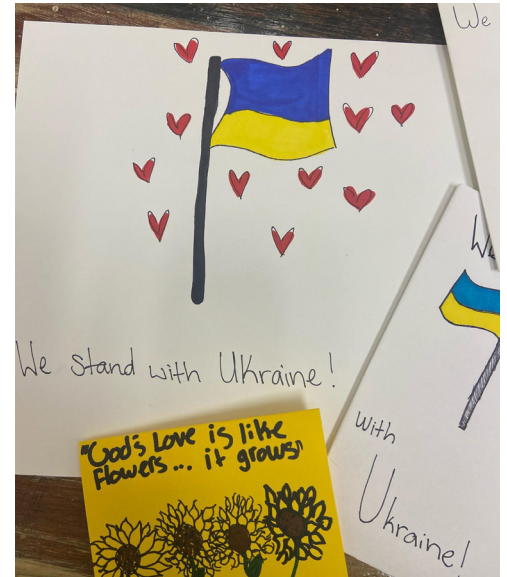 We
We stand with Ukraine!
We
with
Ukraine!
"God's Love is like
Flowers... it grows"